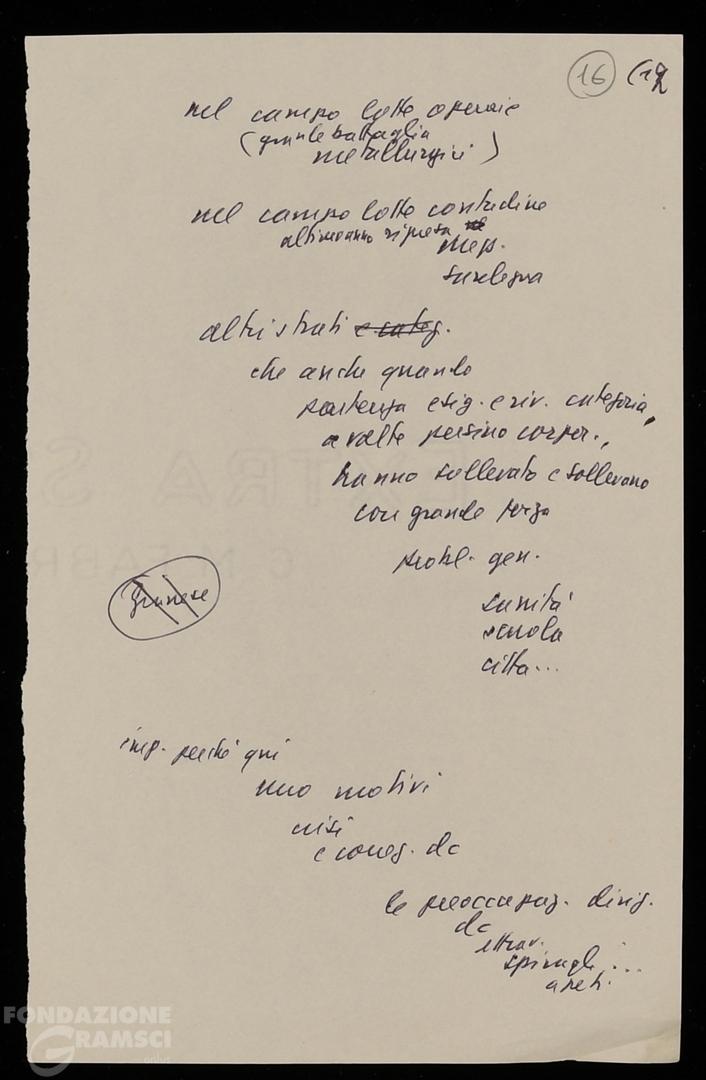 16 (12
nel campo lotte operaie
(grande battaglia
metallurgici)
nel campo lotte contadine
ultimo anno ripresa
Mep.
Sardegna
altri strati e categ.
che anche quando
partenza esig. e riv. categoria,
a volte persino corpor.,
hanno sollevato e sollevano
con grande forza
probl. gen.
sanità
scuola
città...
imp. perché qui
uno motivi
crisi
e coneg. dc
le preoccupaz. dirig.
dc
attrav.
spiragli...
aperti.
EXTRA S
FABR
FONDAZIONE
GRAMSCI
onlus